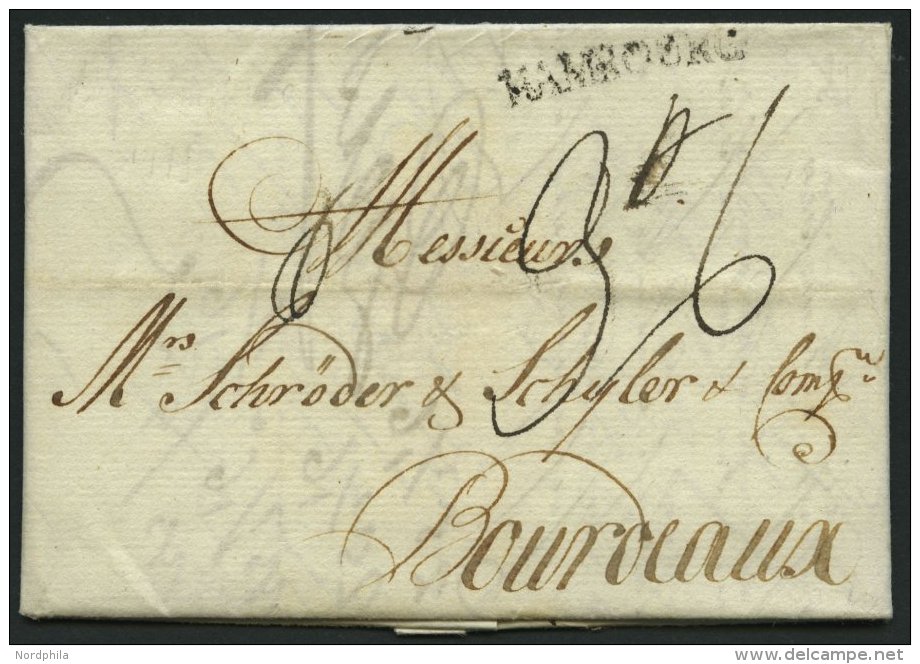 HAMBOURG
36
Messieurs
Mrs Schröder & Schyler & Comp
Bourdeaux
Nordphila
delcampe.net